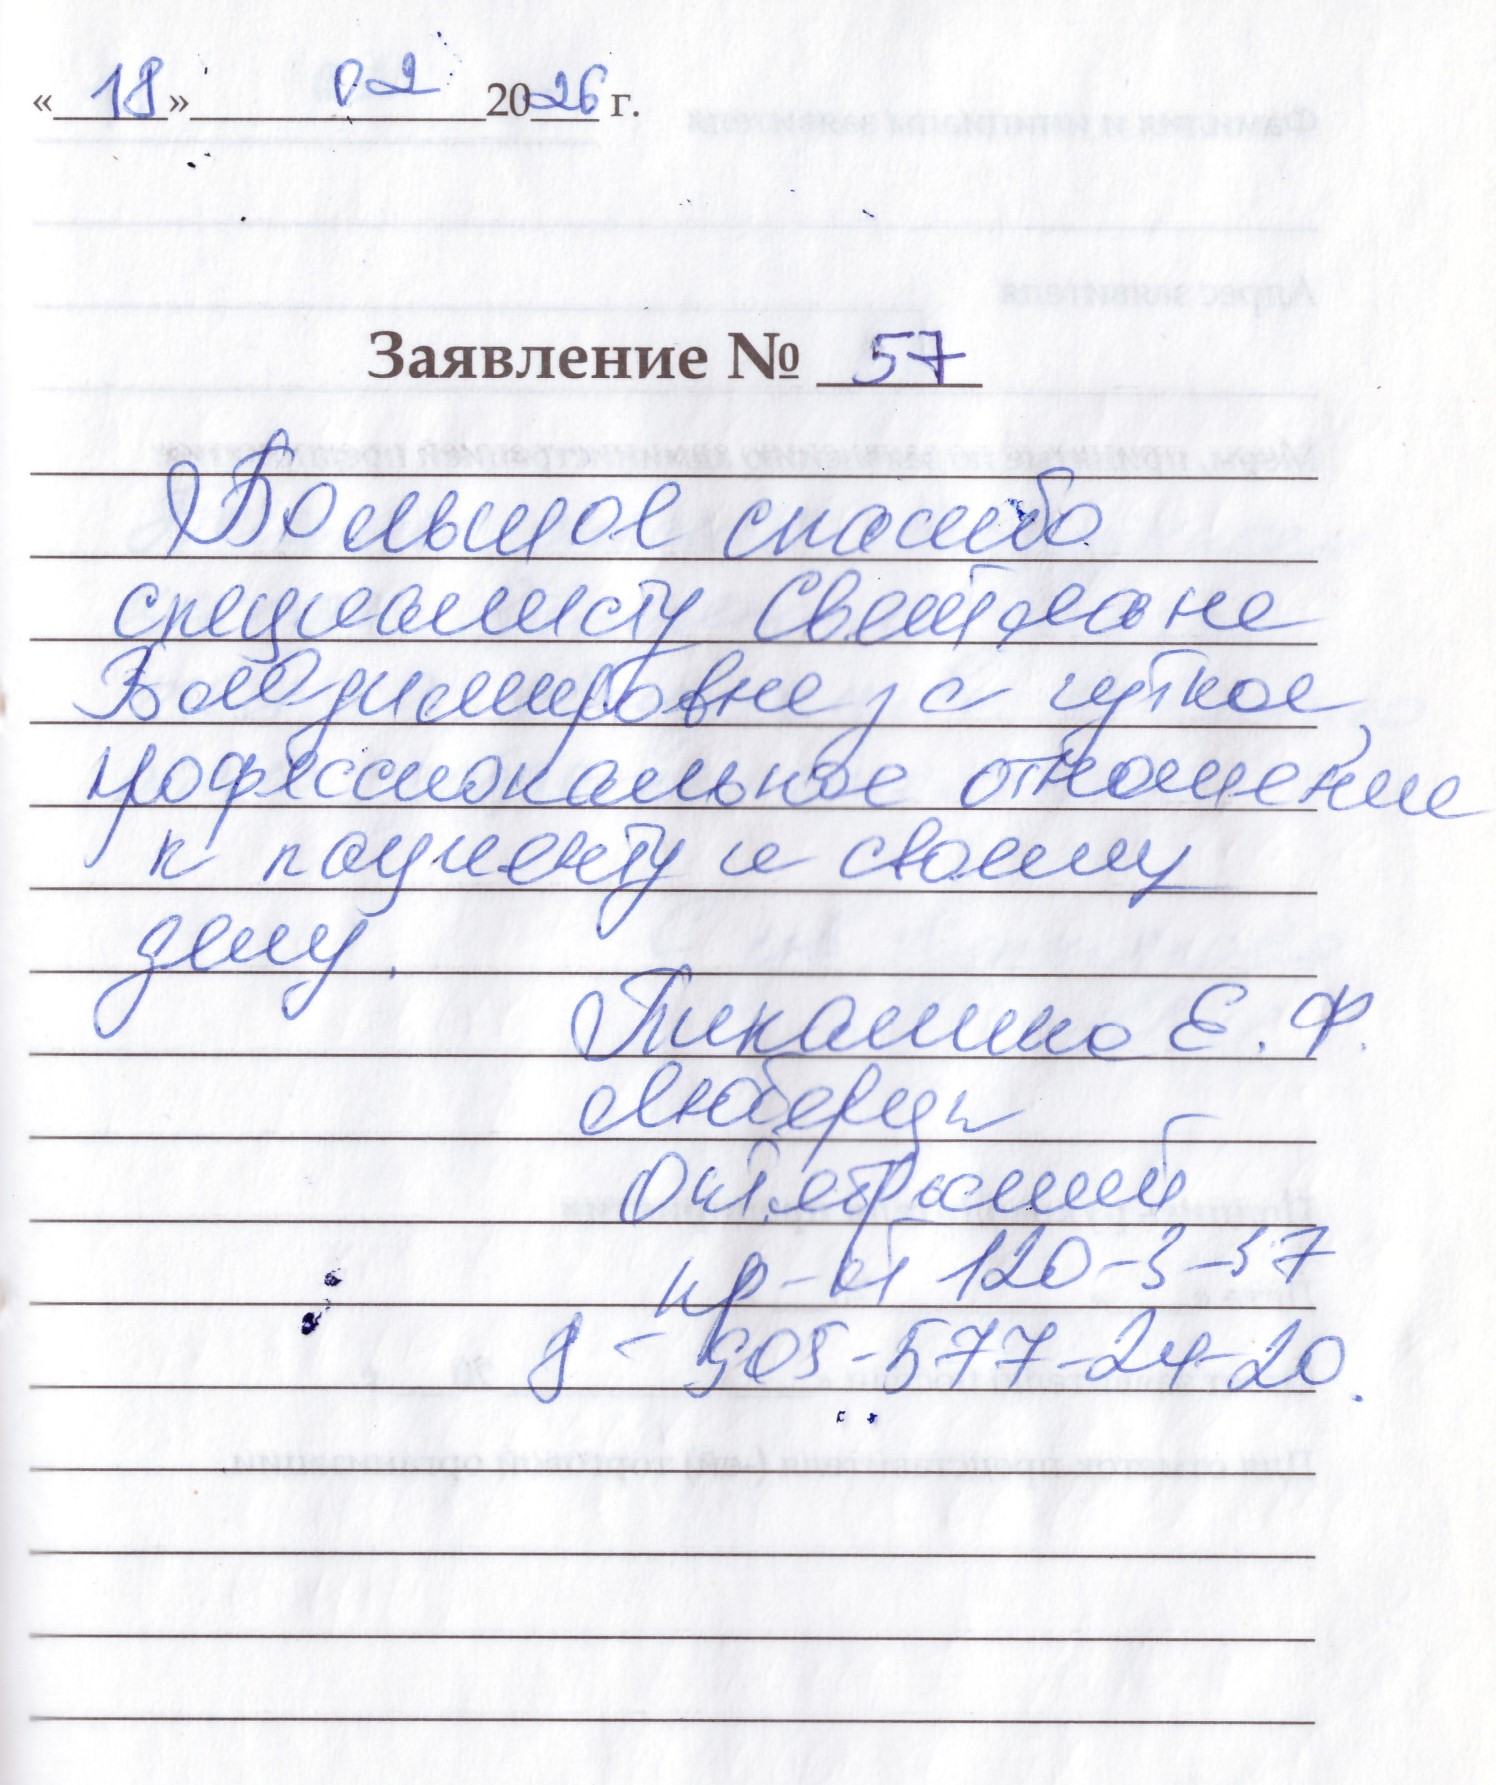 «18» 02 2026 г.
Заявление № 57
Большое спасибо
специалисту Светлане
Владимировне за чуткое,
профессиональное отношение
к пациенту и своему
делу.
Е. Ф.
Люберцы
Октябрьский
пр-кт 120-3-37
8-905-577-24-20.